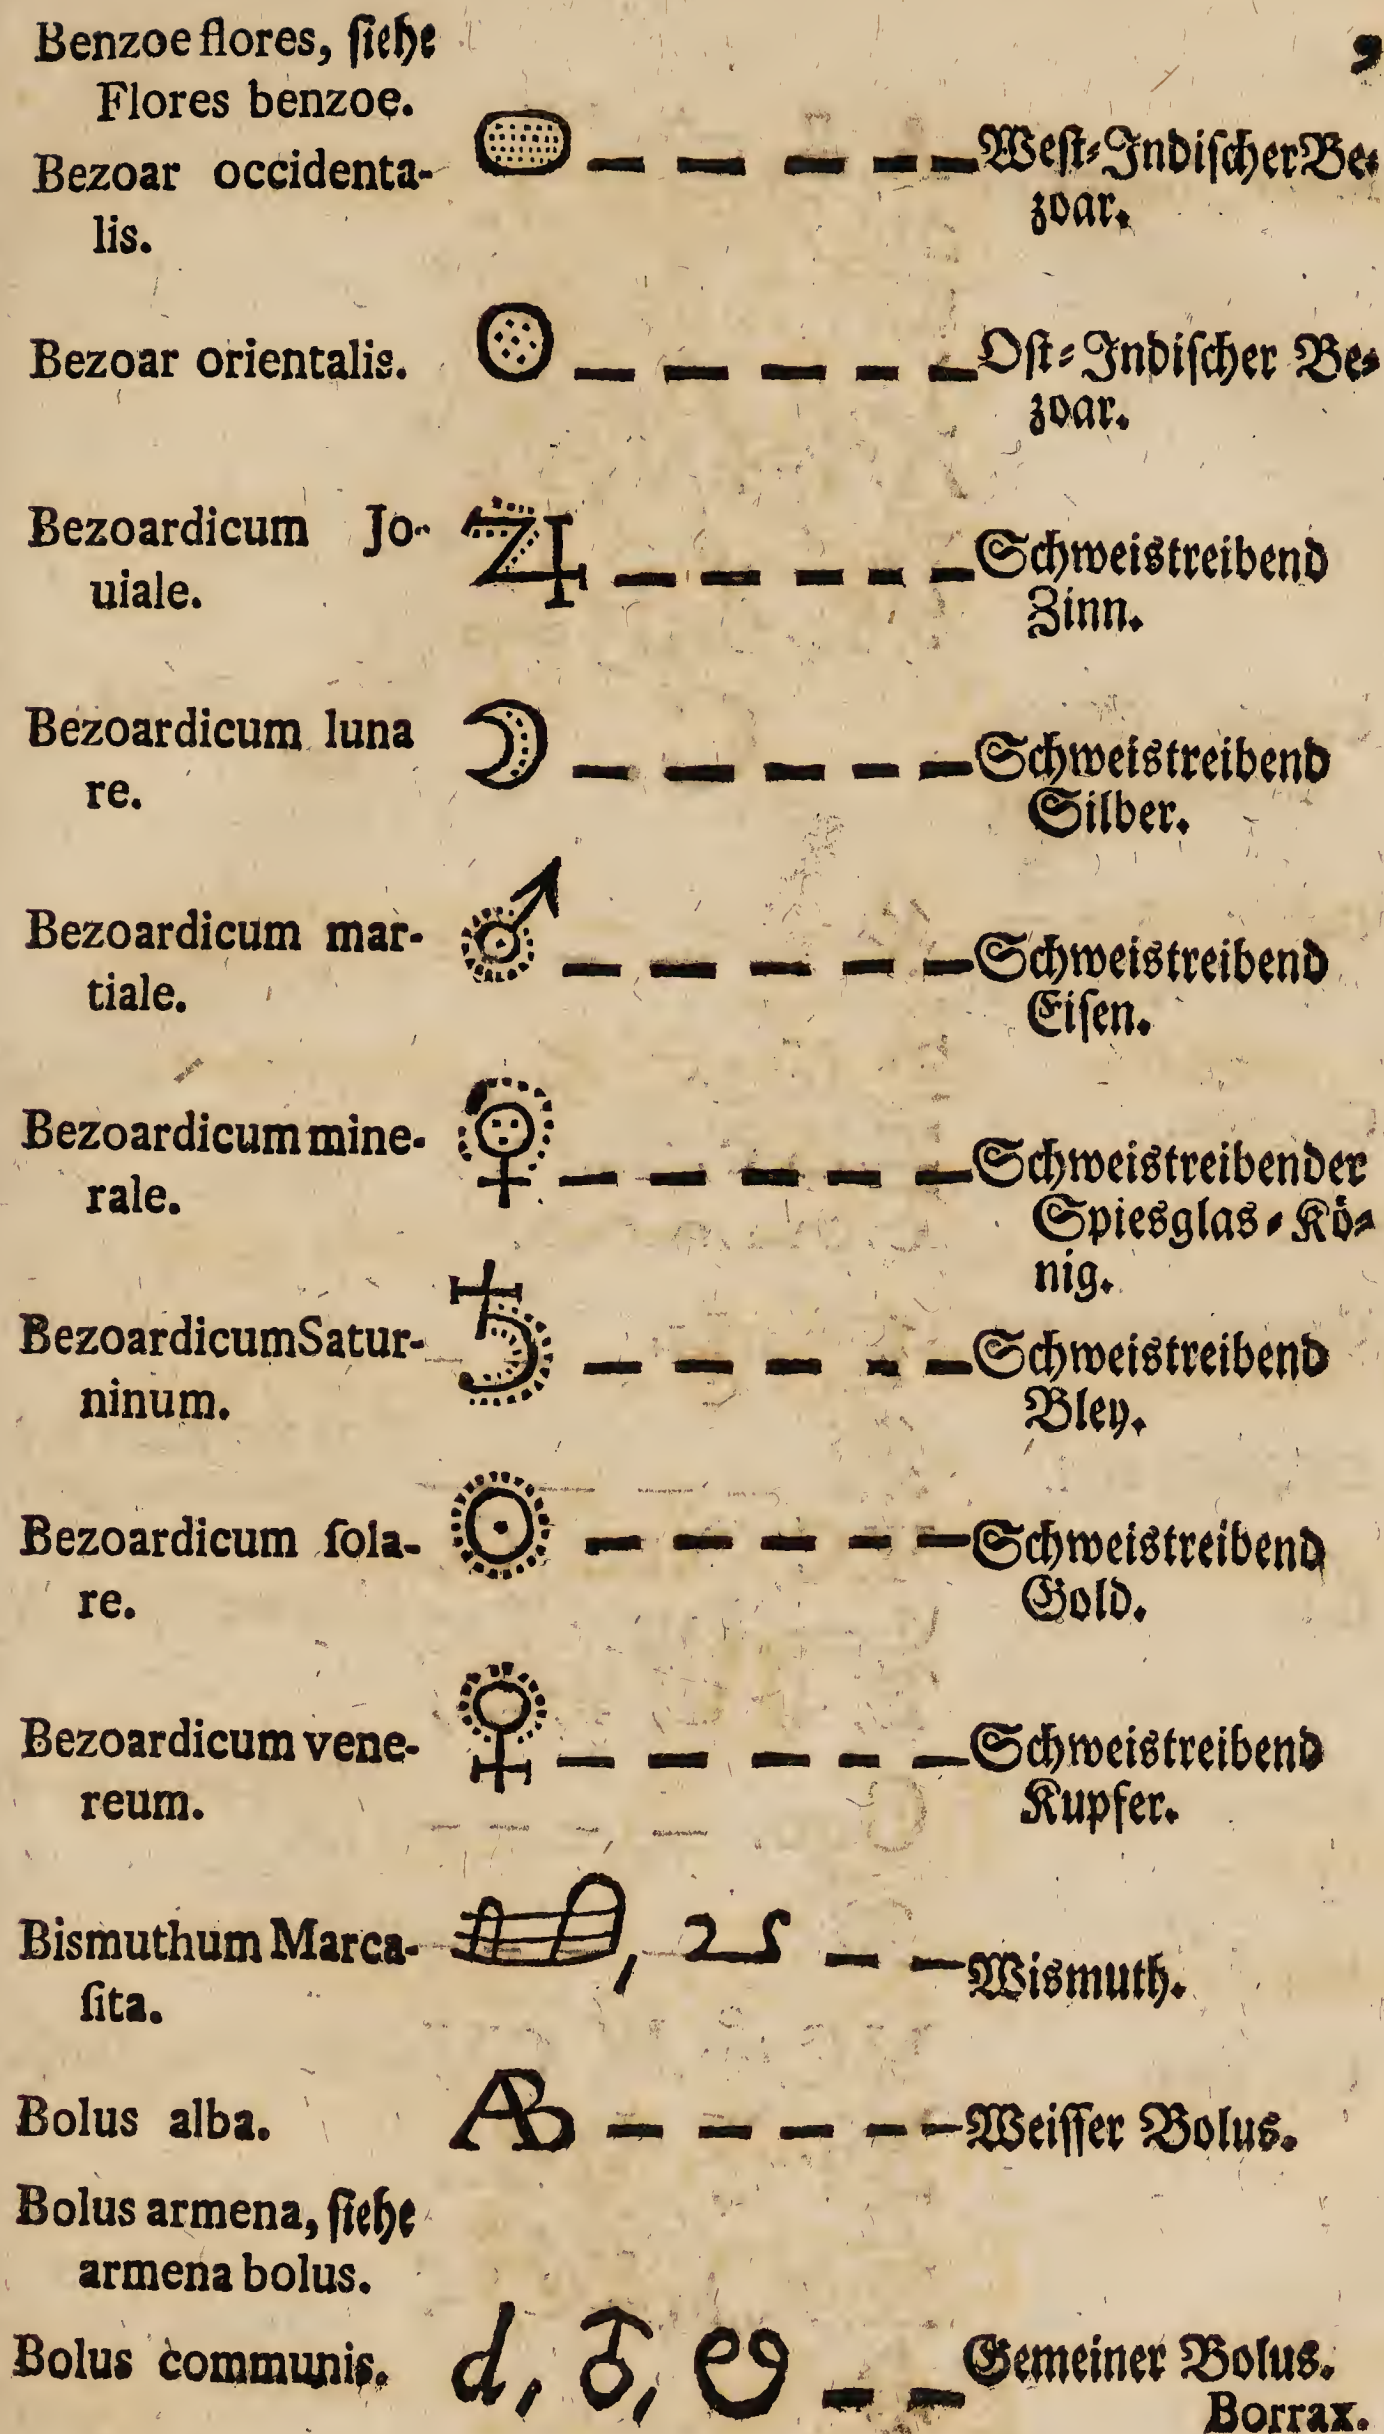 9
Benzoe flores, ſiehe
Flores benzoe.
Bezoar occidenta-
lis.
Weſt-Indiſcher Be-
zoar.
Bezoar orientalis.
Oſt-Indiſcher Be-
zoar.
Bezoardicum Jo-
uiale.
♃
Schweistreibend
Zinn.
Bezoardicum luna
re.
☽
Schweistreibend
Silber.
Bezoardicum mar-
tiale.
♂
Schweistreibend
Eiſen.
Bezoardicum mine-
rale.
♀
Schweistreibender
Spiesglas-Kö-
nig.
Bezoardicum Satur-
ninum.
♄
Schweistreibend
Bley.
Bezoardicum ſola-
re.
☉
Schweistreibend
Gold.
Bezoardicum vene-
reum.
♀
Schweistreibend
Kupfer.
Bismuthum Marca-
ſita.
Wismuth.
Bolus alba.
AB
Weiſſer Bolus.
Bolus armena, ſiehe
armena bolus.
Bolus communis.
d,
Gemeiner Bolus.
Borrax.